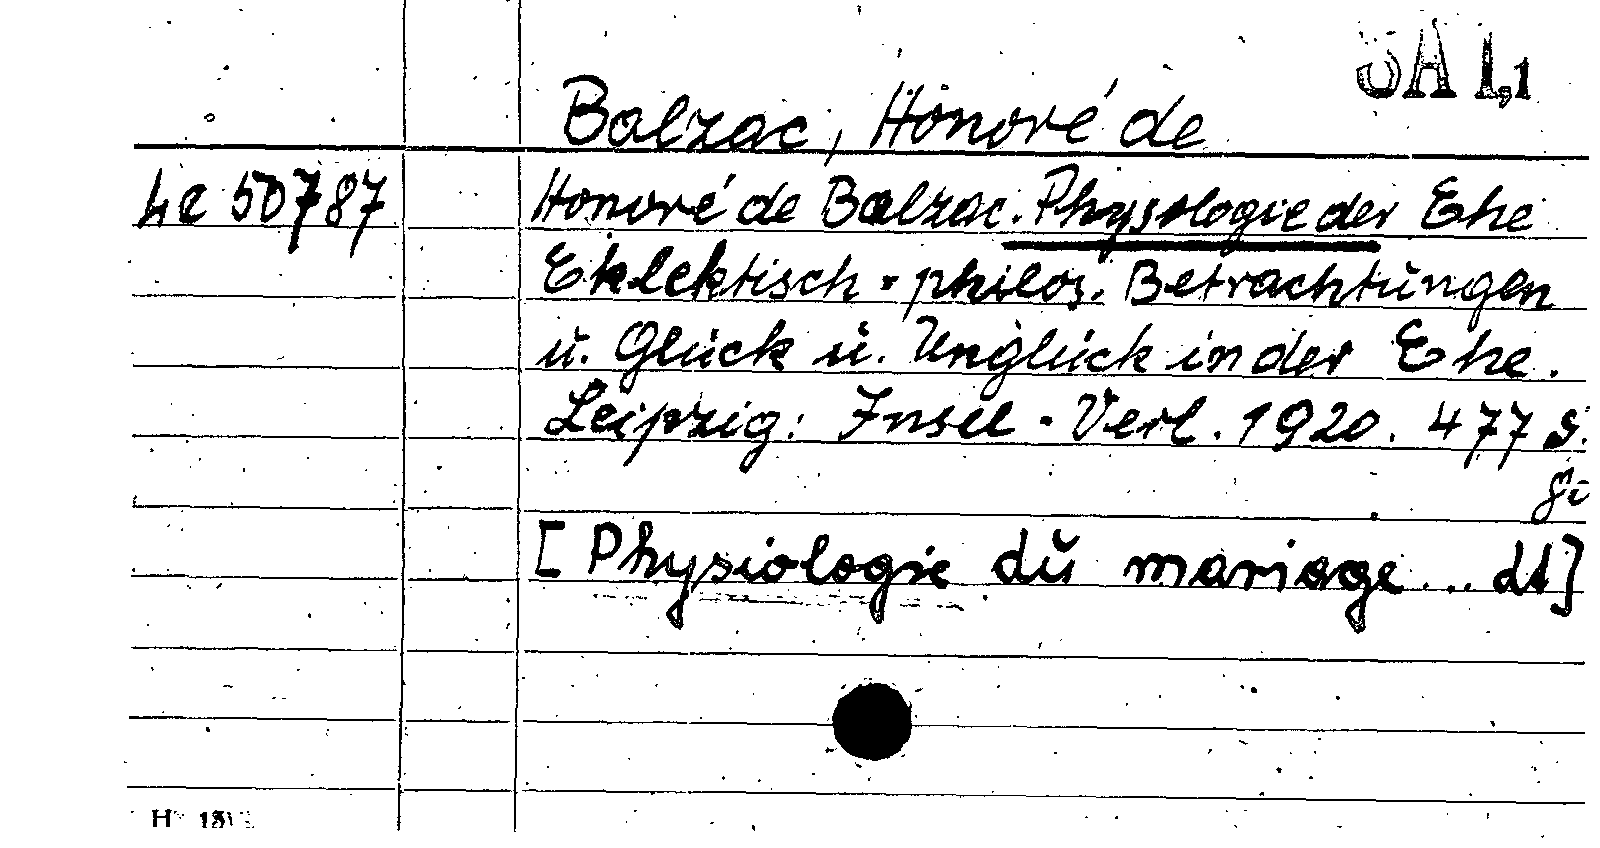 SA I,1
Balzac, Honoré de
Le 50787
Honoré de Balzac. Physiologie der Ehe
Eklektisch-philos. Betrachtungen
ü. Glück u. Unglück in der Ehe.
Leipzig: Insel-Verl. 1920. 477 S.
8°
[Physiologie du mariage... dt]